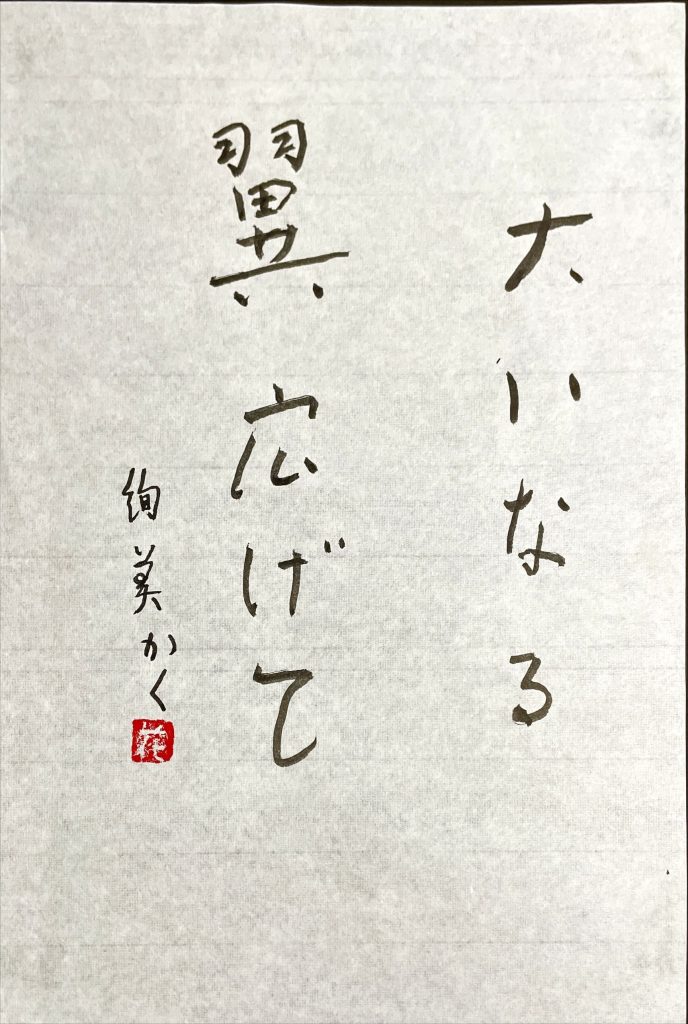 大いなる
翼広げて
絢美かく